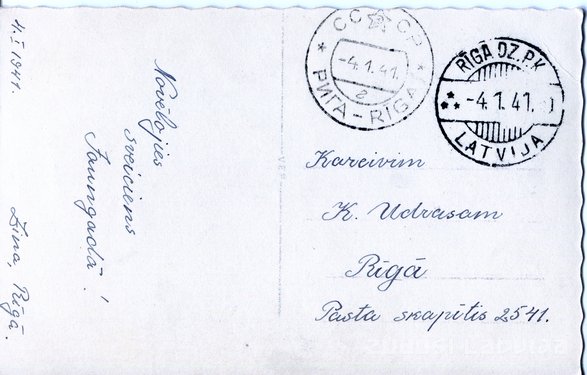 4. I 1941.
Novēlojies
sveiciens
Jaungadā!
Zina, Rīgā.
СС СР
-4.1.41.
РИГА - RIGA
RĪGĀ DZ.P.K
-4.1.41.
LATVIJA
Kareivim
K. Udrasam
Rīgā
Pasta skapītis 2541.